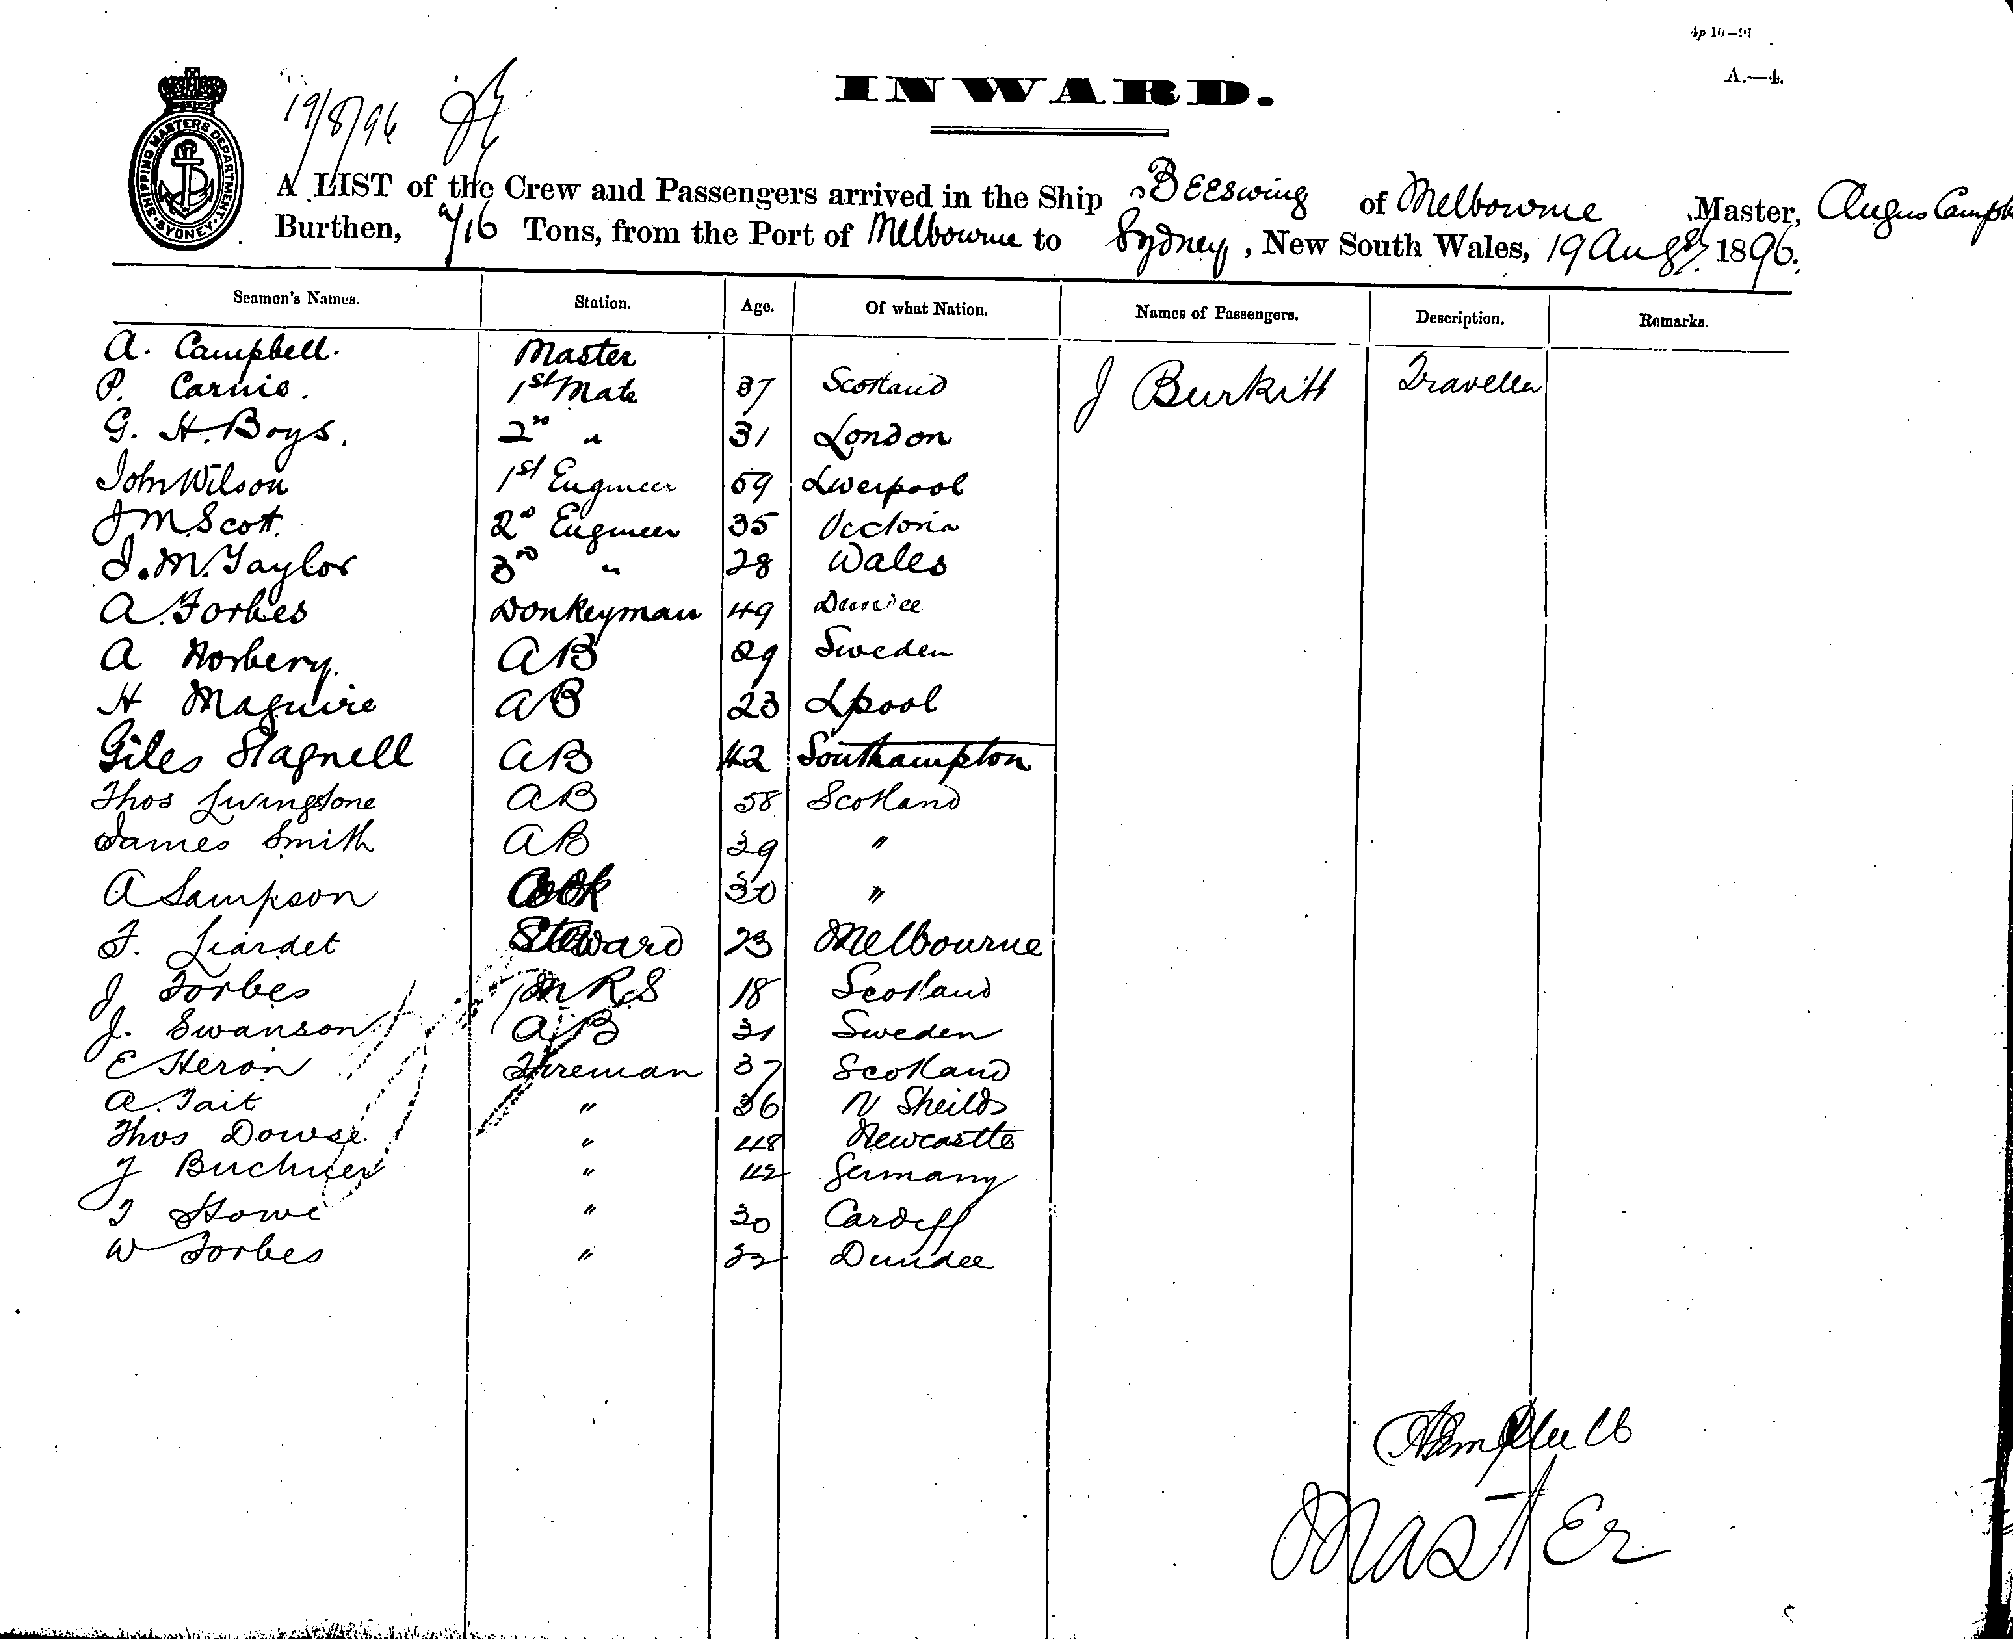 4p 10—91
A.—4.
INWARD.
SHIPPING MASTERS DEPARTMENT SYDNEY
19/8/96
A LIST of the Crew and Passengers arrived in the Ship Beeswing of Melbourne Master, Angus Campb
Burthen, 916 Tons, from the Port of Melbourne to Sydney, New South Wales, 19 Augst 1896.
Seamen's Names. Station. Age. Of what Nation. Names of Passengers. Description. Remarks.
A. Campbell. Master
P. Carnie. 1st Mate 37 Scotland J Burkitt Traveller
G. H. Boys. 2nd " 31 London
John Wilson 1st Engineer 59 Liverpool
J M Scott. 2nd Engineer 35 Victoria
J. M. Taylor 3rd " 28 Wales
A. Forbes Donkeyman 49 Dundee
A Norbery. AB 29 Sweden
H Maguire AB 23 Lpool
Giles Stagnell AB 42 Southampton
Thos Livingstone AB 58 Scotland
James Smith AB 39 "
A Sampson Cook 30 "
F. Liardet Steward 23 Melbourne
J Forbes M R S 18 Scotland
J. Swanson AB 31 Sweden
E Heron Fireman 37 Scotland
A. Tait " 36 N Sheilds
Thos Dowse " 48 Newcastle
J Buchner " 42 Germany
T Howe " 30 Cardiff
W Forbes " 32 Dundee
ACampbell
Master